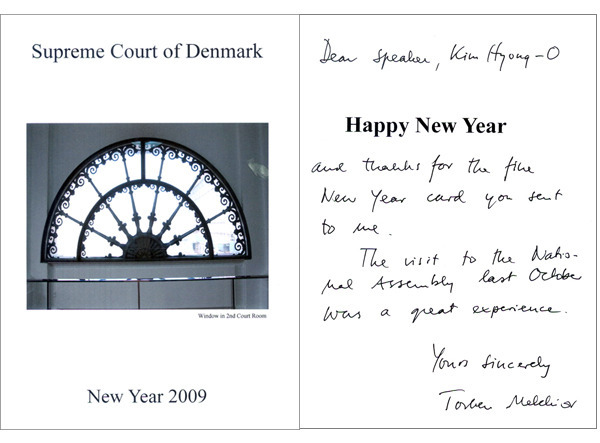 Supreme Court of Denmark
Window in 2nd Court Room
New Year 2009
Dear Speaker, Kim Hyong-O
Happy New Year
and thanks for the fine
New Year card you sent
to me.
The visit to the Natio-
nal Assembly last October
was a great experience.
Yours sincerely
Torben Melchior